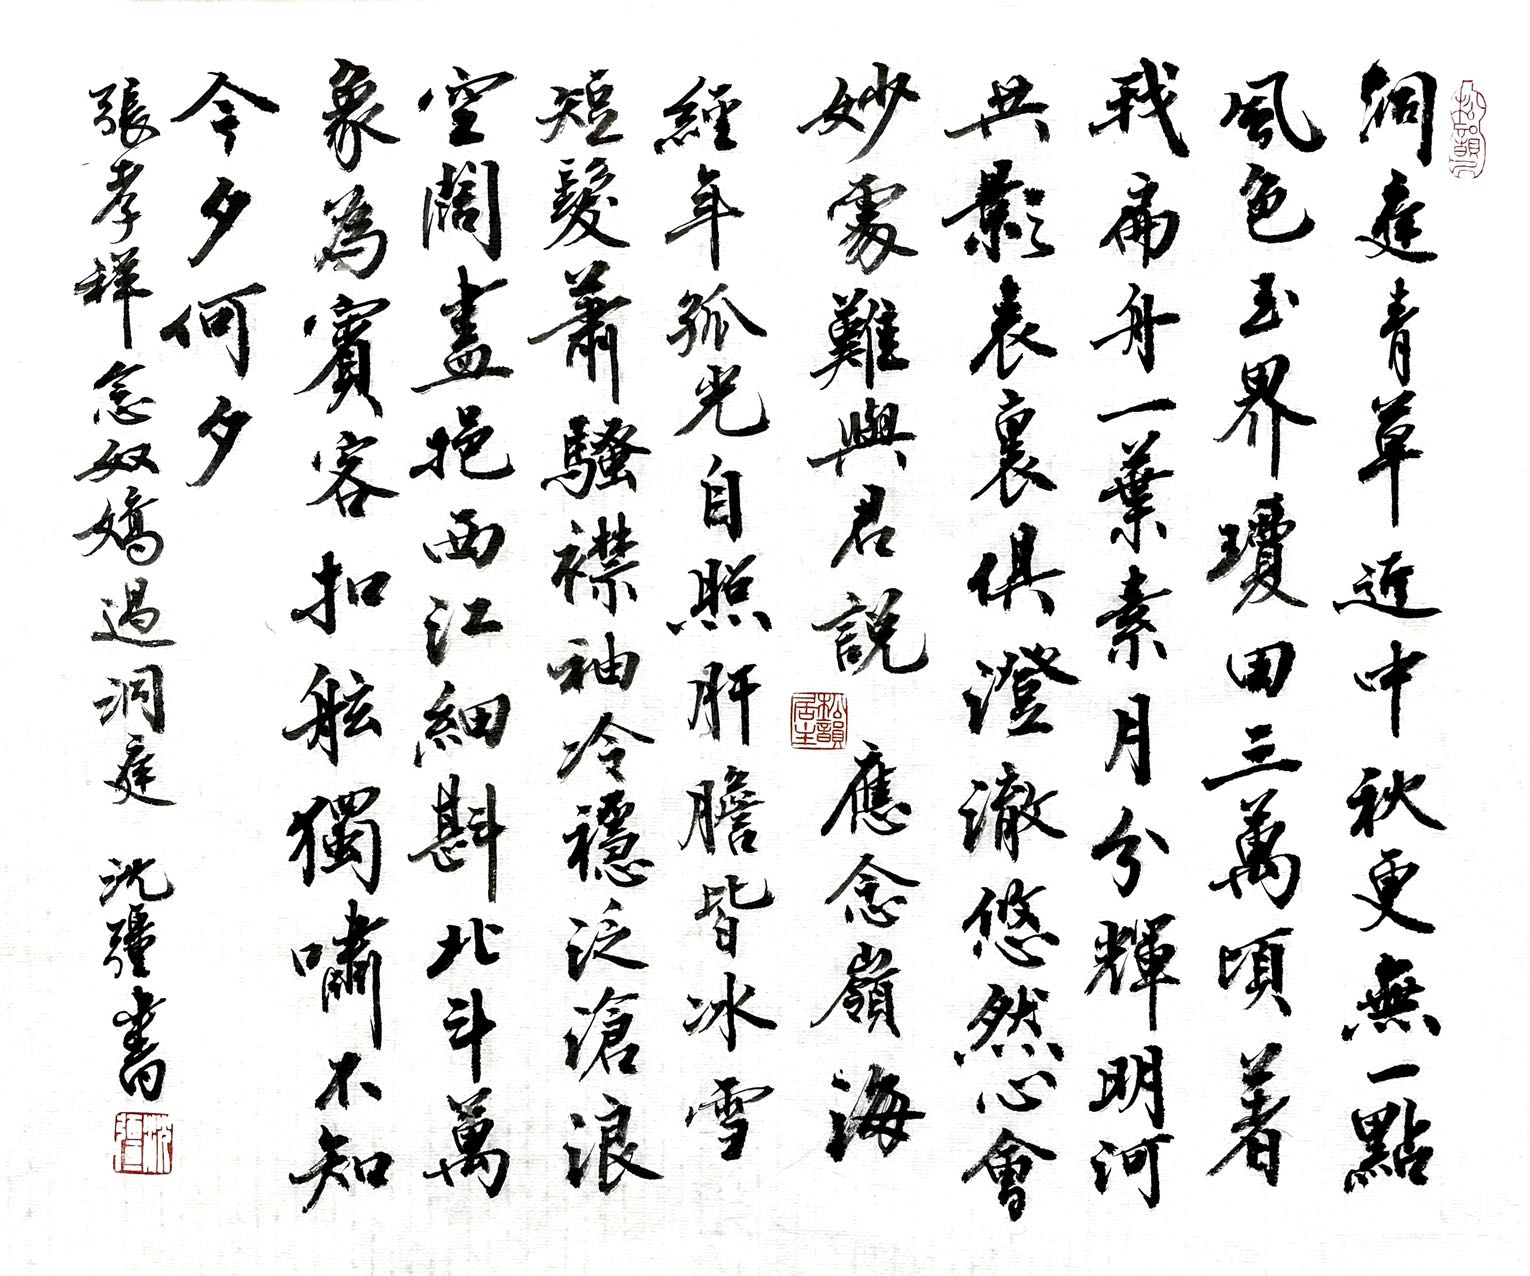 松韻
洞庭青草近中秋更無一點
風色玉界瓊田三萬頃着
我扁舟一葉素月分輝明河
共影表裏俱澄澈悠然心會
妙處難與君說 應念嶺海
松韻居主
經年孤光自照肝膽皆冰雪
短髮蕭騷襟袖冷穩泛滄浪
空闊盡挹西江細斟北斗萬
象為賓客扣舷獨嘯不知
今夕何夕
張孝祥念奴嬌過洞庭 沈彊書
沈彊